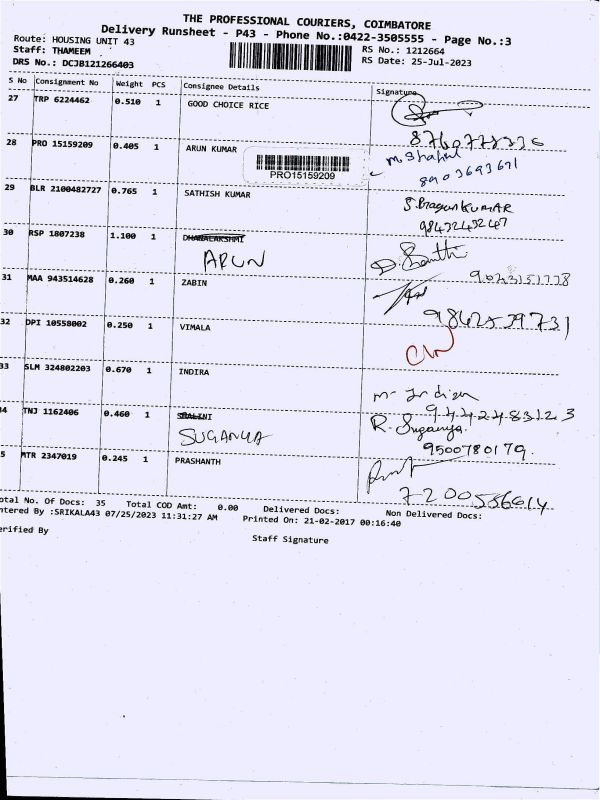 THE PROFESSIONAL COURIERS, COIMBATORE
Delivery Runsheet - P43 - Phone No.:0422-3505555 - Page No.:3
Route: HOUSING UNIT 43
RS No.: 1212664
Staff: THAMEEM
RS Date: 25-Jul-2023
DRS No.: DCJB121266403
S No Consignment No Weight PCS Consignee Details Signature
27 TRP 6224462 0.510 1 GOOD CHOICE RICE
28 PRO 15159209 0.405 1 ARUN KUMAR
PRO15159209
8903693691
29 BLR 2100482727 0.765 1 SATHISH KUMAR
98432452467
30 RSP 1807238 1.100 1 DHANALAKSHMI
ARUN
31 MAA 943514628 0.260 1 ZABIN
32 DPI 10558002 0.250 1 VIMALA
9842539731
33 SLM 324802203 0.670 1 INDIRA
9442483123
34 TNJ 1162406 0.460 1 SHALINI
SUGANYA
R. Suganya.
9500780179.
5 MTR 2347019 0.245 1 PRASHANTH
7200556614
otal No. Of Docs: 35 Total COD Amt: 0.00 Delivered Docs: Non Delivered Docs:
ntered By :SRIKALA43 07/25/2023 11:31:27 AM Printed On: 21-02-2017 00:16:40
erified By
Staff Signature